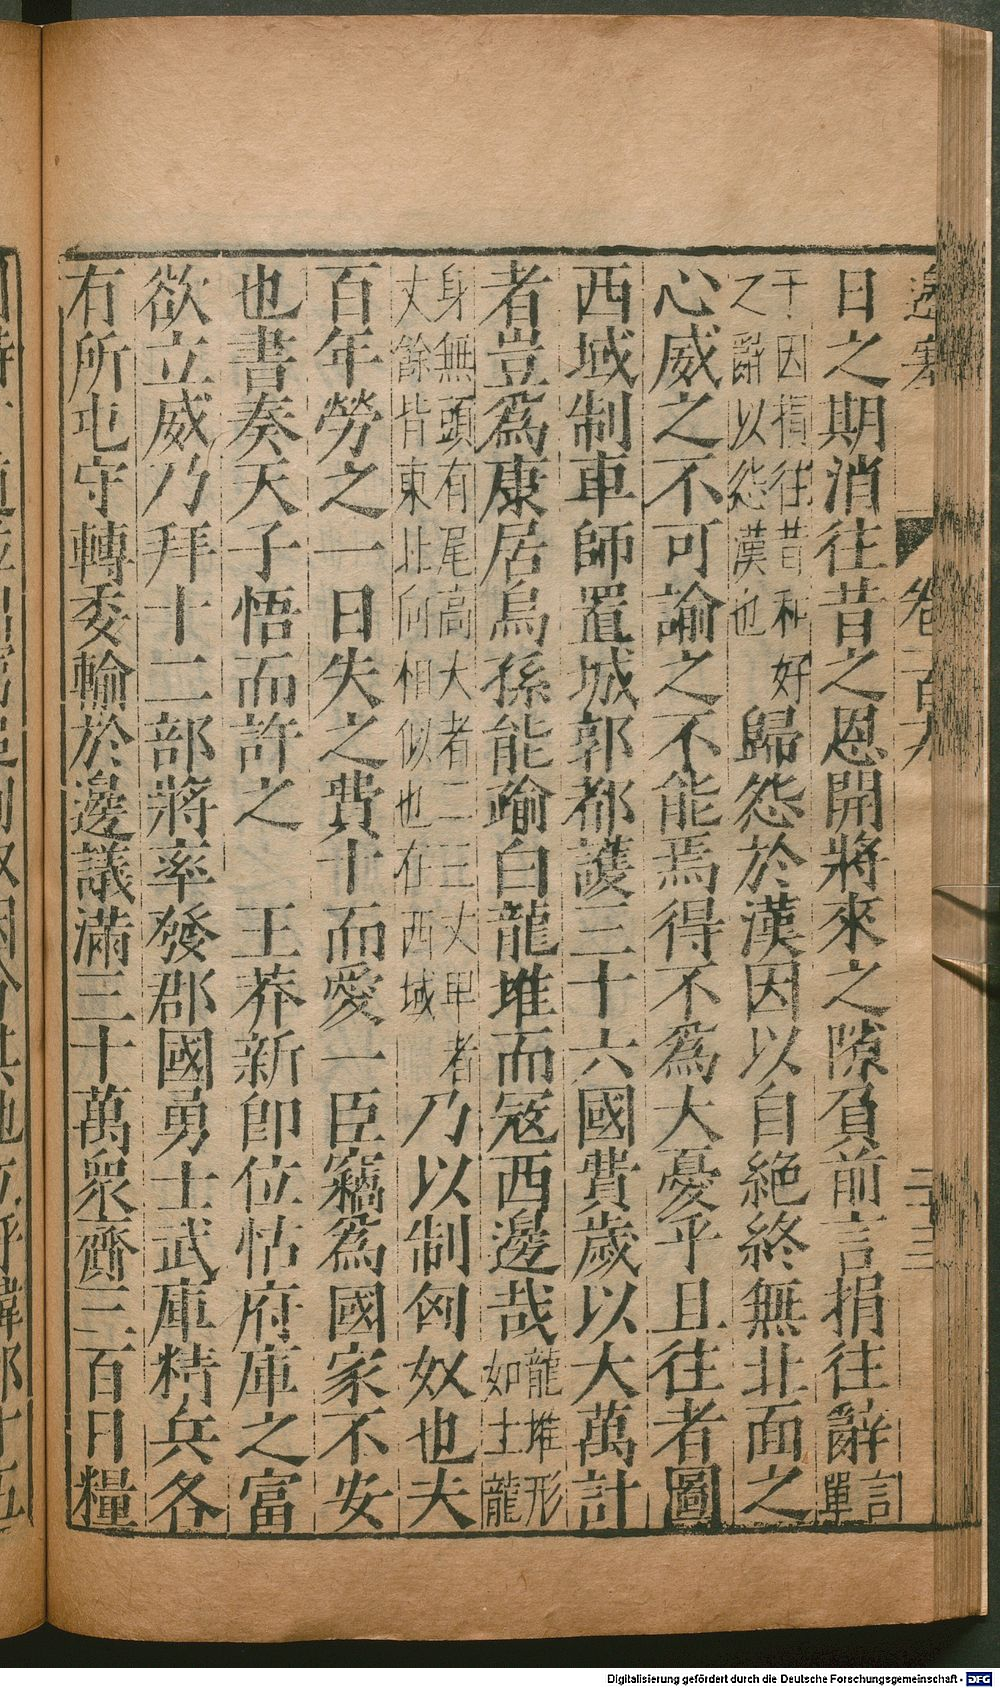 邊塞 卷二百九 二十三
日之期消往昔之恩開將來之隙負前言捐往辭言單
于因指往昔和好之辭以怨漢也歸怨於漢因以自絕終無北面之
心威之不可諭之不能焉得不為大憂乎且往者圖
西域制車師置城郭都護三十六國費歲以大萬計
者豈為康居烏孫能踰白龍堆而寇西邊哉龍堆形如土龍
身無頭有尾高大者二三丈卑者丈餘皆東北向相似也在西域乃以制匈奴也夫
百年勞之一日失之費十而愛一臣竊為國家不安
也書奏天子悟而許之 王莽新即位怙府庫之富
欲立威乃拜十二部將率發郡國勇士武庫精兵各
有所屯守轉委輸於邊議滿三十萬衆齎三百日糧
Digitalisierung gefördert durch die Deutsche Forschungsgemeinschaft - DFG